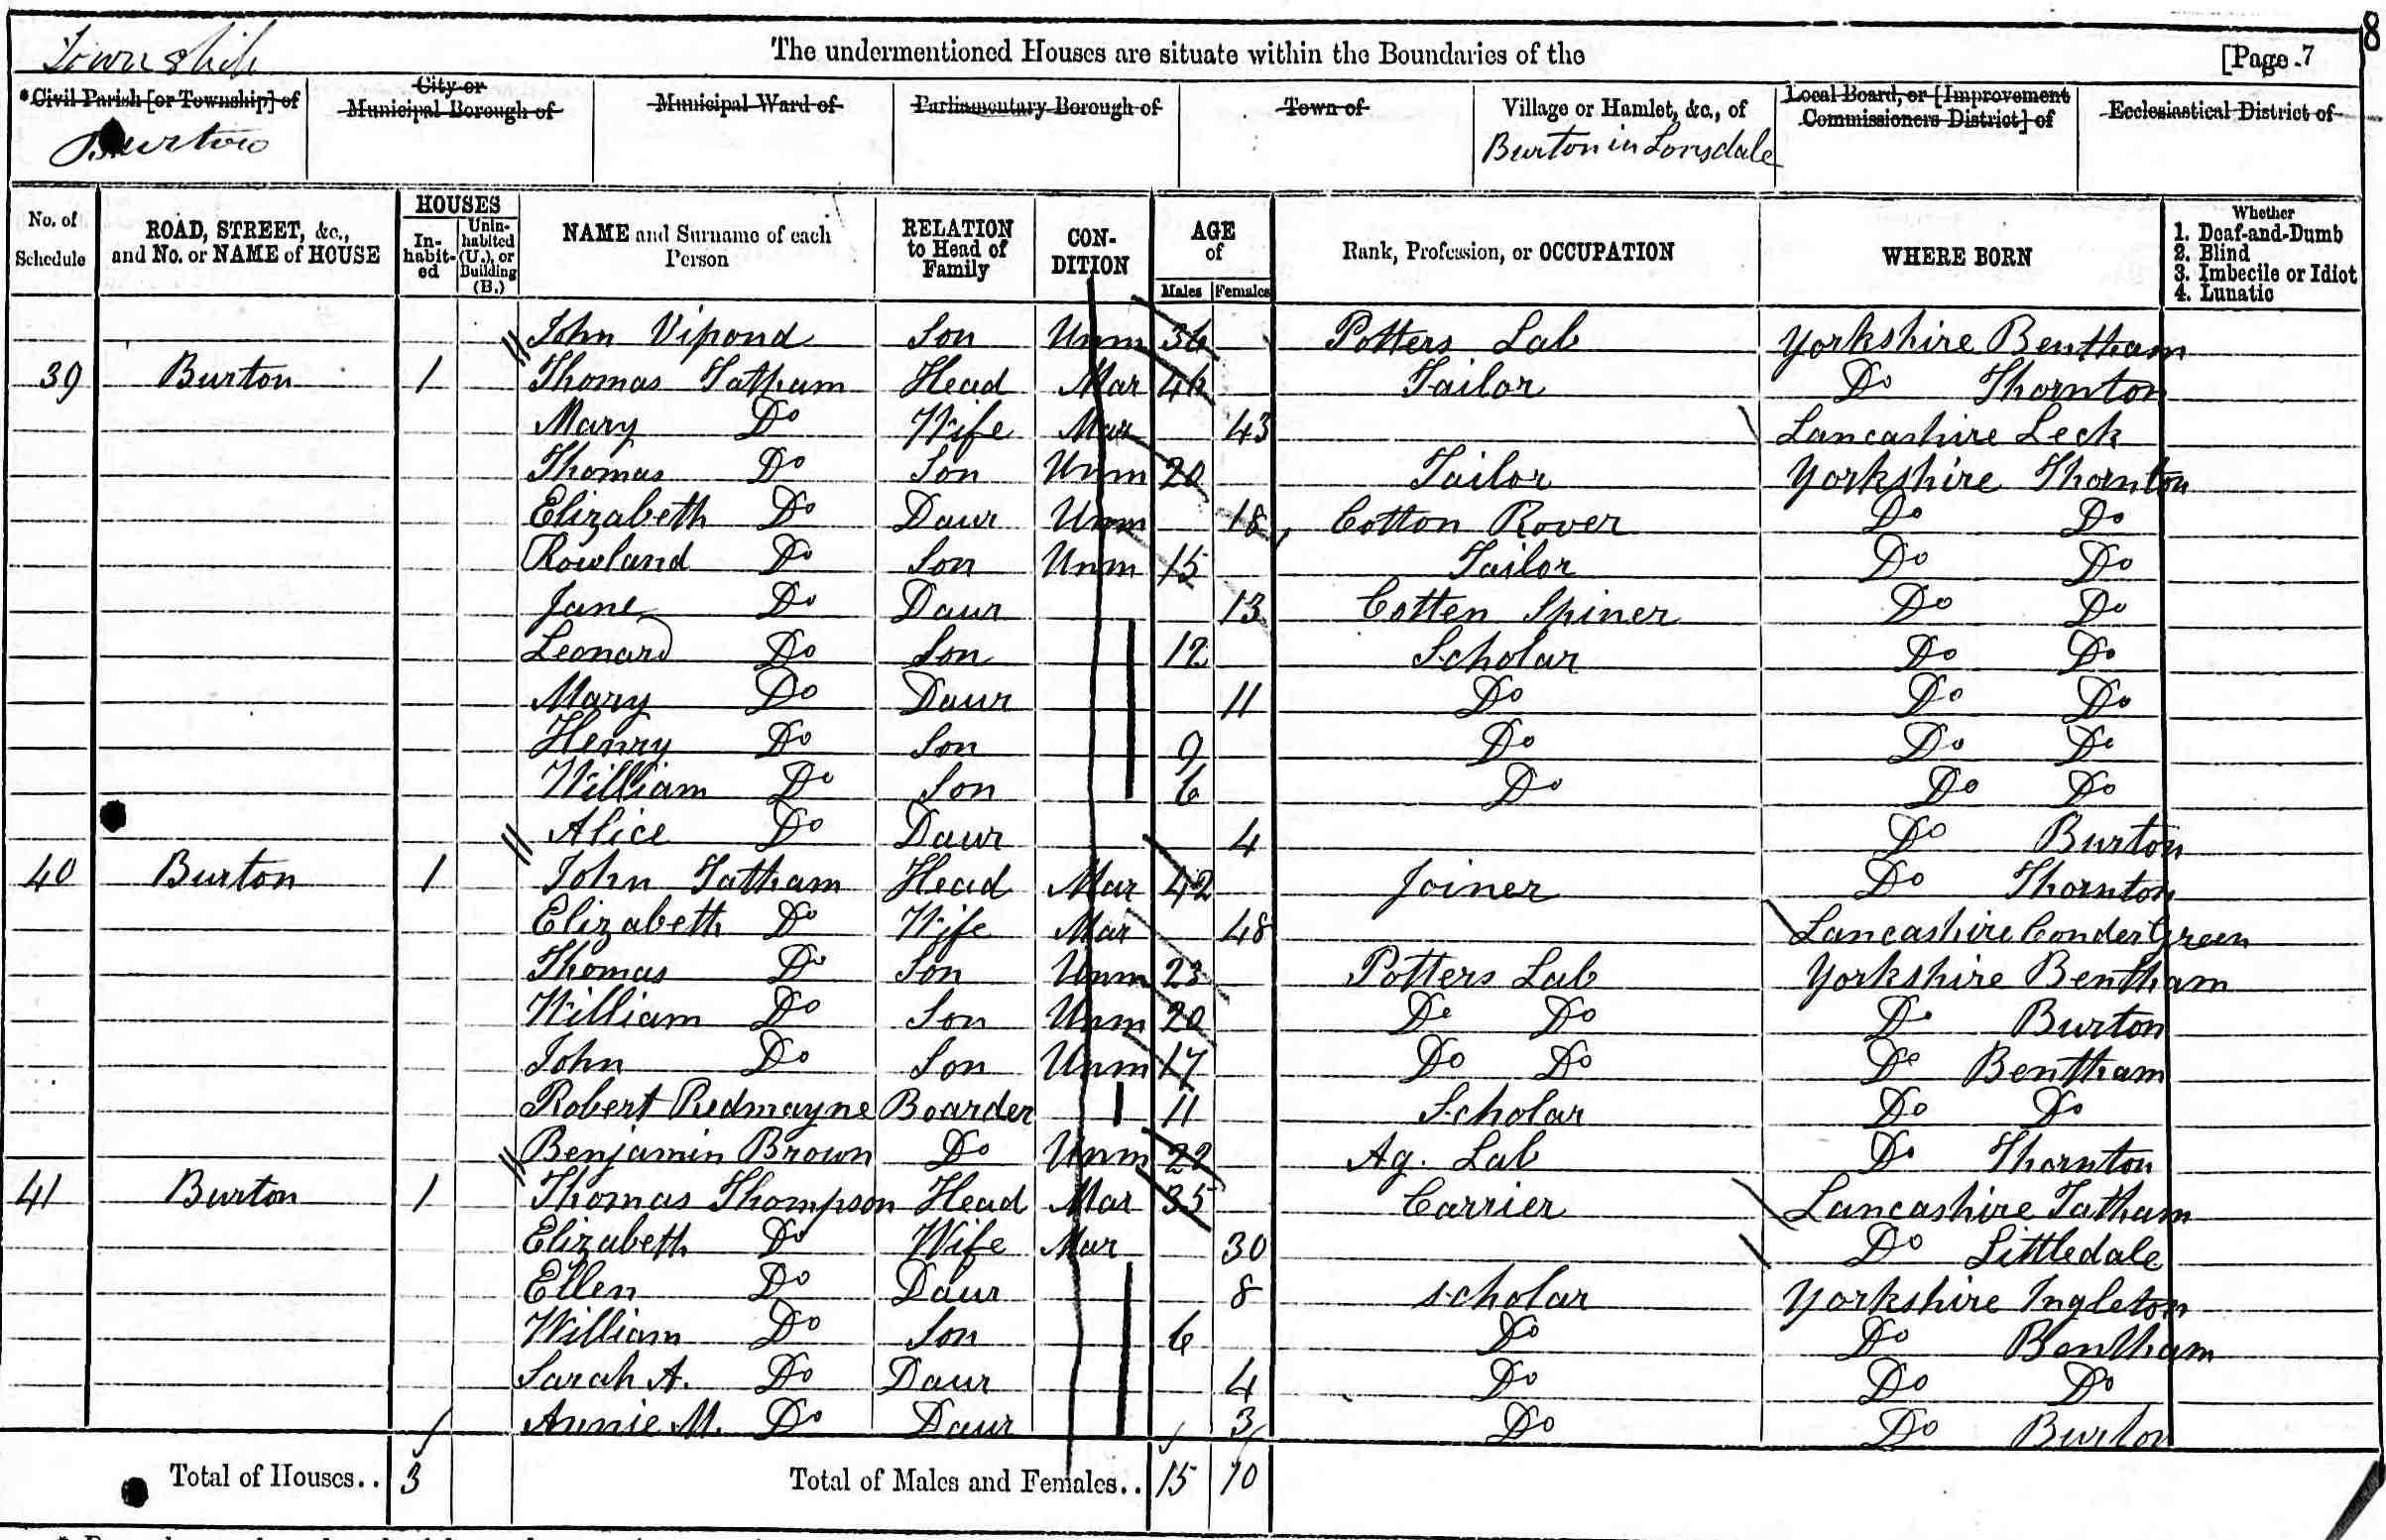 8
Township The undermentioned Houses are situate within the Boundaries of the [Page 7
*Civil Parish [or Township] of City or Municipal Borough of Municipal Ward of Parliamentary Borough of Town of Village or Hamlet, &c., of Local Board, or [Improvement Commissioners District] of Ecclesiastical District of
Burton Burton in Lonsdale
No. of Schedule ROAD, STREET, &c., and No. or NAME of HOUSE HOUSES Inhabited Uninhabited (U.), or Building (B.) NAME and Surname of each Person RELATION to Head of Family CONDITION AGE of Males Females Rank, Profession, or OCCUPATION WHERE BORN Whether 1. Deaf-and-Dumb 2. Blind 3. Imbecile or Idiot 4. Lunatic
John Vipond Son Unm 36 Potters Lab Yorkshire Bentham
39 Burton 1 Thomas Tatham Head Mar Tailor Do Thornton
Mary Do Wife Mar 43 Lancashire Leck
Thomas Do Son Unm 20 Tailor Yorkshire Thornton
Elizabeth Do Daur Unm 18 Cotton Rover Do Do
Rowland Do Son Unm 15 Tailor Do Do
Jane Do Daur 13 Cotten Spiner Do Do
Leonard Do Son 12 Scholar Do Do
Mary Do Daur 11 Do Do Do
Henry Do Son 9 Do Do Do
William Do Son 6 Do Do Do
Alice Do Daur 4 Do Burton
40 Burton 1 John Tatham Head Mar 42 Joiner Do Thornton
Elizabeth Do Wife Mar 48 Lancashire Conder Green
Thomas Do Son Unm 23 Potters Lab Yorkshire Bentham
William Do Son Unm 20 Do Do Do Burton
John Do Son Unm 17 Do Do Do Bentham
Robert Redmayne Boarder 11 Scholar Do Do
Benjamin Brown Do Unm 22 Ag. Lab Do Thornton
41 Burton 1 Thomas Thompson Head Mar 35 Carrier Lancashire Tatham
Elizabeth Do Wife Mar 30 Do Littledale
Ellen Do Daur 8 scholar Yorkshire Ingleton
William Do Son 6 Do Do Bentham
Sarah A. Do Daur 4 Do Do Do
Annie M. Do Daur 3 Do Do Burton
Total of Houses.. 3 Total of Males and Females.. 15 10